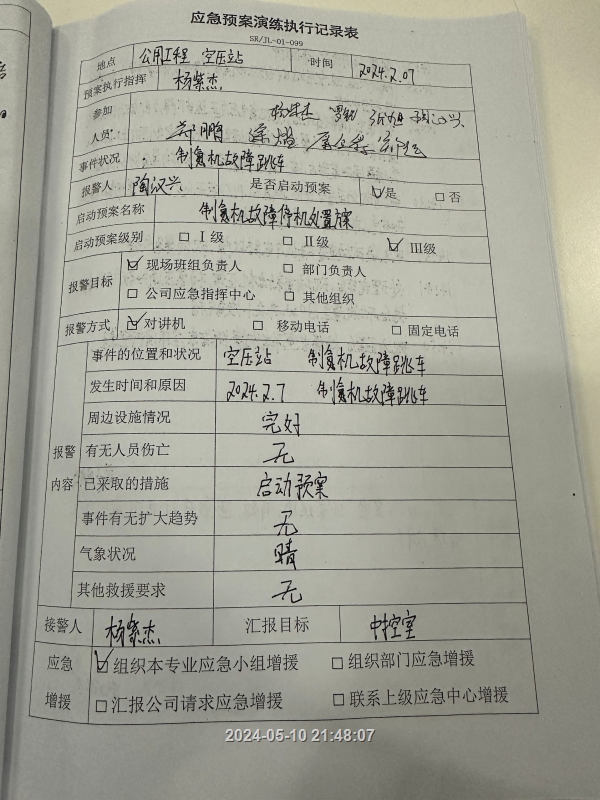 应急预案演练执行记录表
SR/JL-01-099
地点 公用工程 空压站 时间 2024.2.07
预案执行指挥 杨紫杰
参加
人员
事件状况 制氮机故障跳车
报警人 陶汉兴 是否启动预案 ☑是 □否
启动预案名称 制氮机故障停机处置方案
启动预案级别 □Ⅰ级 □Ⅱ级 ☑Ⅲ级
报警目标 ☑现场班组负责人 □部门负责人
□公司应急指挥中心 □其他组织
报警方式 ☑对讲机 □移动电话 □固定电话
事件的位置和状况 空压站 制氮机故障跳车
发生时间和原因 2024.2.7 制氮机故障跳车
周边设施情况 完好
报警 有无人员伤亡 无
内容 已采取的措施 启动预案
事件有无扩大趋势 无
气象状况 晴
其他救援要求 无
接警人 杨紫杰 汇报目标 中控室
应急 ☑组织本专业应急小组增援 □组织部门应急增援
增援 □汇报公司请求应急增援 □联系上级应急中心增援
2024-05-10 21:48:07